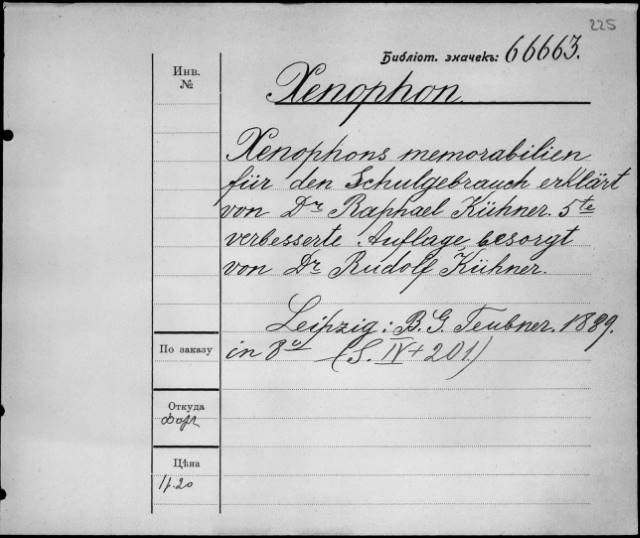 225
Библіот. значекъ: 66663.
Инв.
№
Xenophon.
Xenophons memorabilien
für den Schulgebrauch erklärt
von Dr Raphael Kühner. 5te
verbesserte Auflage besorgt
von Dr Rudolf Kühner.
Leipzig: B. G. Teubner. 1889.
По заказу
in 8º (S. IV + 201.)
Откуда
Цѣна
1р.20